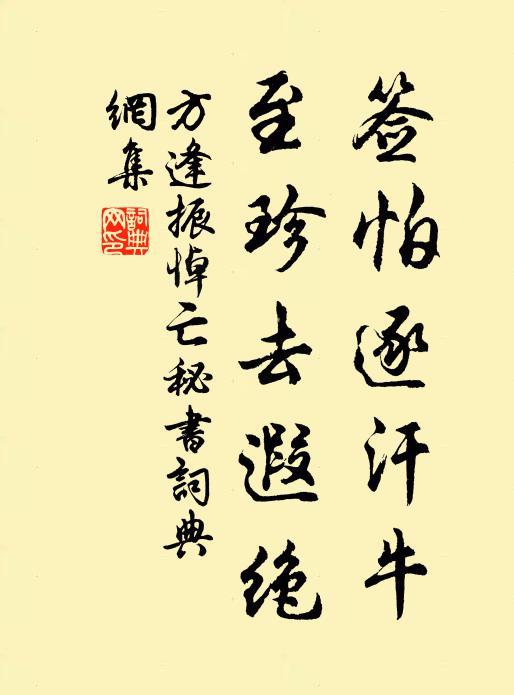 签怕逐汗牛
至珍去遐绝
方逢振悼亡秘書詞典
網集
詞典
网印